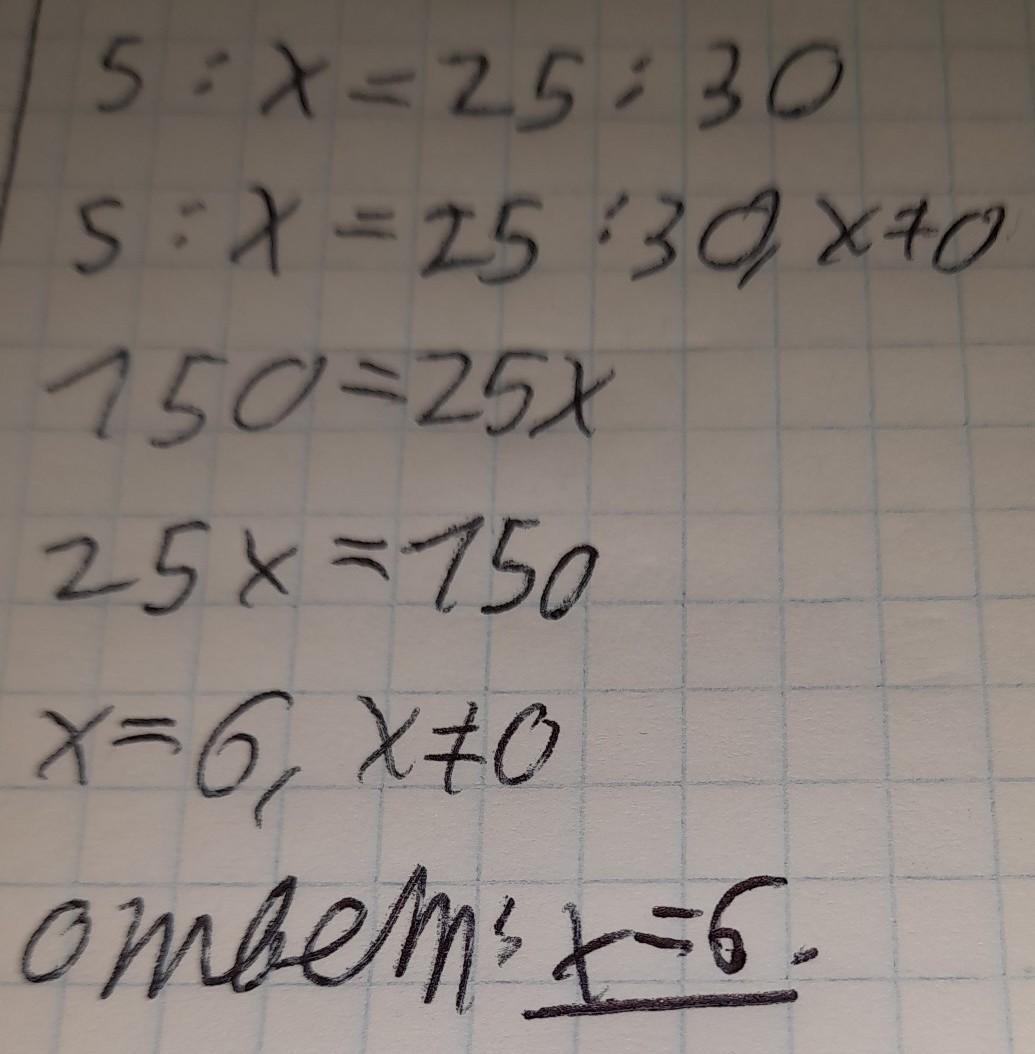 5 : x = 25 : 30
5 : x = 25 : 30, x ≠ 0
150 = 25x
25x = 150
x = 6, x ≠ 0
ответ: x = 6.